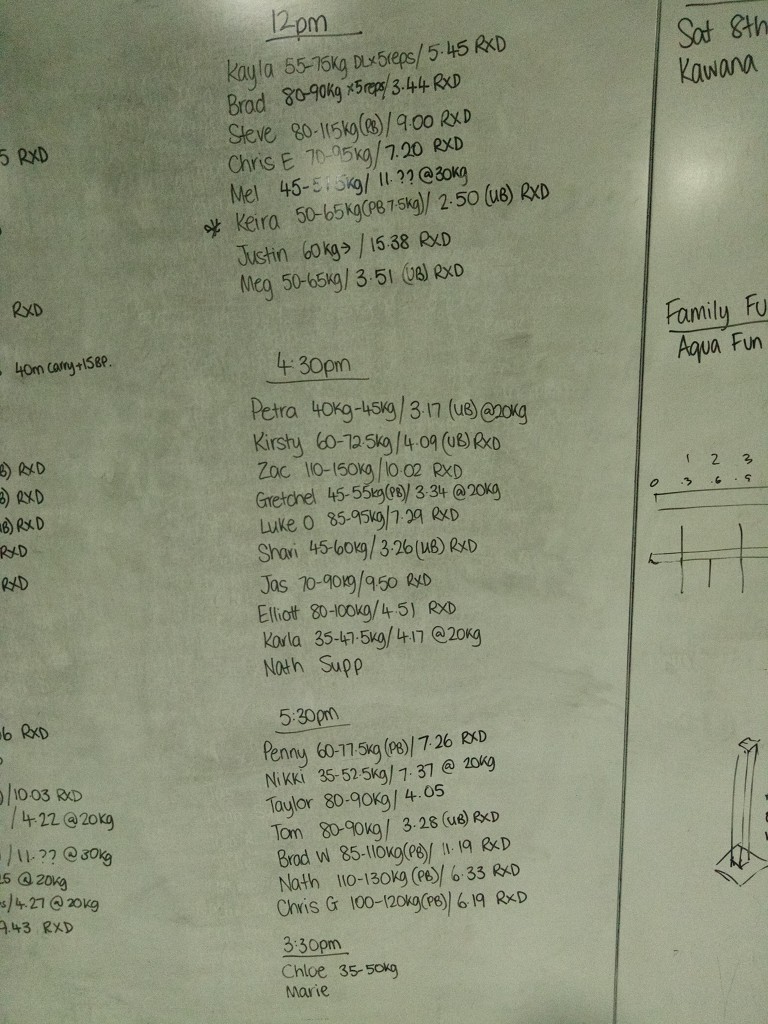 12pm
Kayla 55-75kg DLx5reps/ 5.45 RXD
Brad 80-90kg x5reps/3.44 RXD
Steve 80-115kg(PB)/ 9.00 RXD
Chris E 70-95kg/7.20 RXD
Mel 45-kg/ 11.?? @30kg
* Keira 50-65kg(PB 7.5kg)/ 2.50 (UB) RXD
Justin 60kg→ / 15.38 RXD
Meg 50-65kg/ 3.51 (UB) RXD
4:30pm
Petra 40kg-45kg/ 3.17 (UB) @20kg
Kirsty 60-72.5kg/4.09 (UB) RXD
Zac 110-150kg/10.02 RXD
Gretchel 45-55kg(PB)/ 3.34 @20kg
Luke O 85-95kg/7.29 RXD
Shari 45-60kg/3.26 (UB) RXD
Jas 70-90kg/9.50 RXD
Elliott 80-100kg/4.51 RXD
Karla 35-47.5kg/4.17 @20kg
Nath Supp
5:30pm
Penny 60-77.5kg (PB)/ 7.26 RXD
Nikki 35-52.5kg/ 7.37 @ 20kg
Taylor 80-90kg/ 4.05
Tom 80-90kg/ 3.28 (UB) RXD
Brad W 85-110kg(PB)/ 11.19 RXD
Nath 110-130kg (PB)/ 6.33 RXD
Chris G 100-120kg(PB)/ 6.19 RXD
3:30pm
Chloe 35-50kg
Marie
5 RXD
RXD
40m carry+15BP.
B) RXD
B) RXD
UB) RXD
RXD
RXD
6 RXD
)/10.03 RXD
/ 4.22 @20kg
)/11.?? @30kg
25 @ 20kg
s/4.27 @20kg
9.43 RXD
Sat 8th
Kawana
Family Fu
Aqua Fun
1 2 3
0 .3 .6 .9